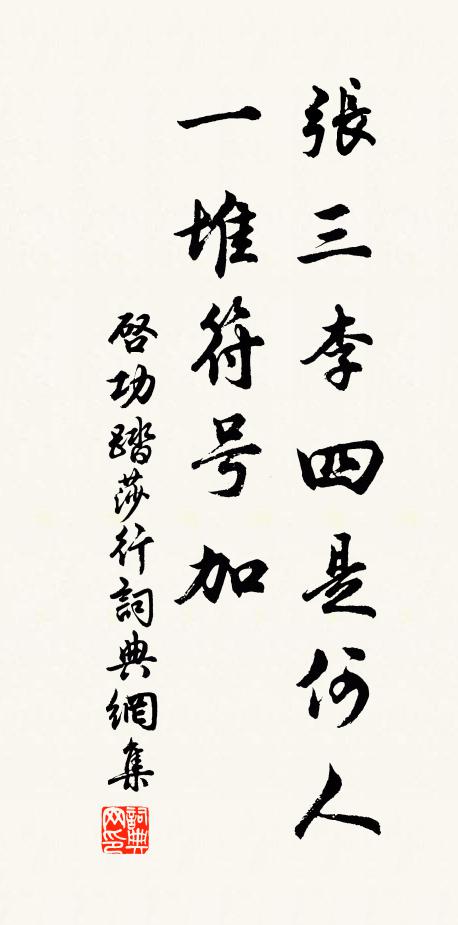 張三李四是何人
一堆符号加
啓功踏莎行詞典網集
詞典
网印